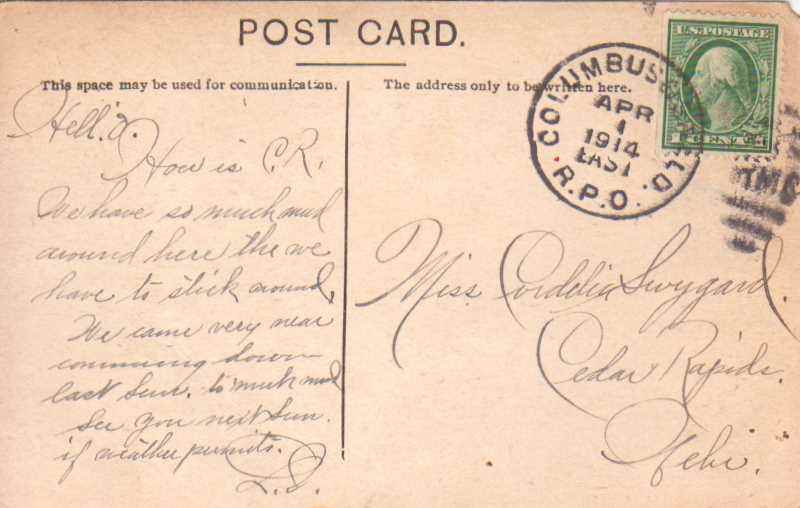 POST CARD.
This space may be used for communication.
Hell.o.
How is C.R.
We have so much mud
around here the we
have to stick around.
We came very near
comming down
last Sun. to much mud
See you next Sun.
if weather permits.
The address only to be written here.
COLUMBUS
APR
1
1914
EAST
R.P.O.
U.S. POSTAGE
1 CENT 1
Miss Cordelia Swygard.
Cedar Rapids.
Nebr.